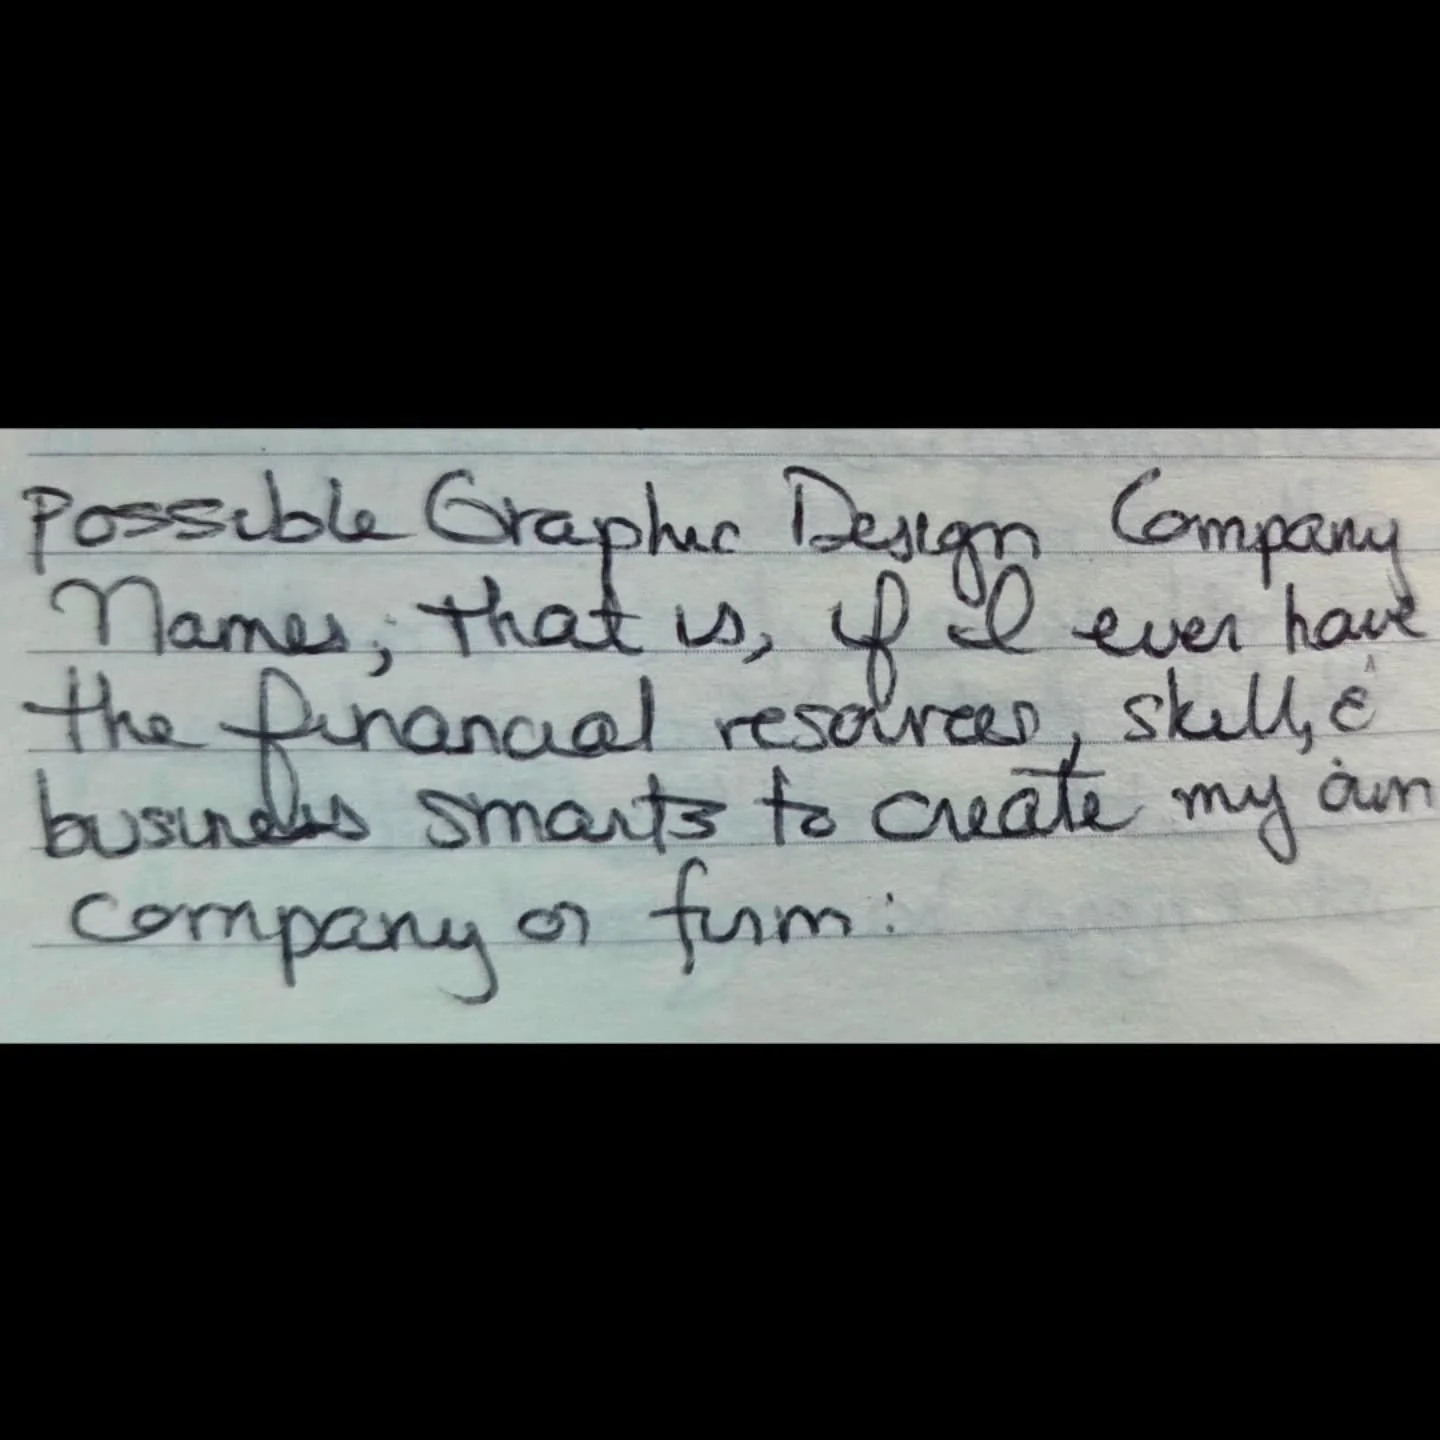 Possible Graphic Design Company
Names; that is, if I ever have
the financial resources, skill, &
business smarts to create my own
company or firm: